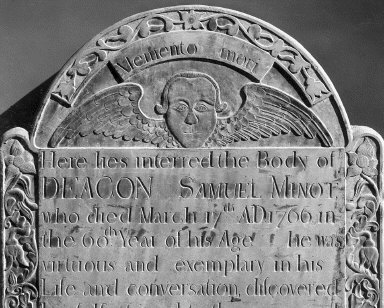 Memento mori
Here lies interred the Body of
DEACON SAMUEL MINOT
who died March 17th AD 1766 in
the 60th Year of his Age he was
virtuous and exemplary in his
Life and conversation, discovered